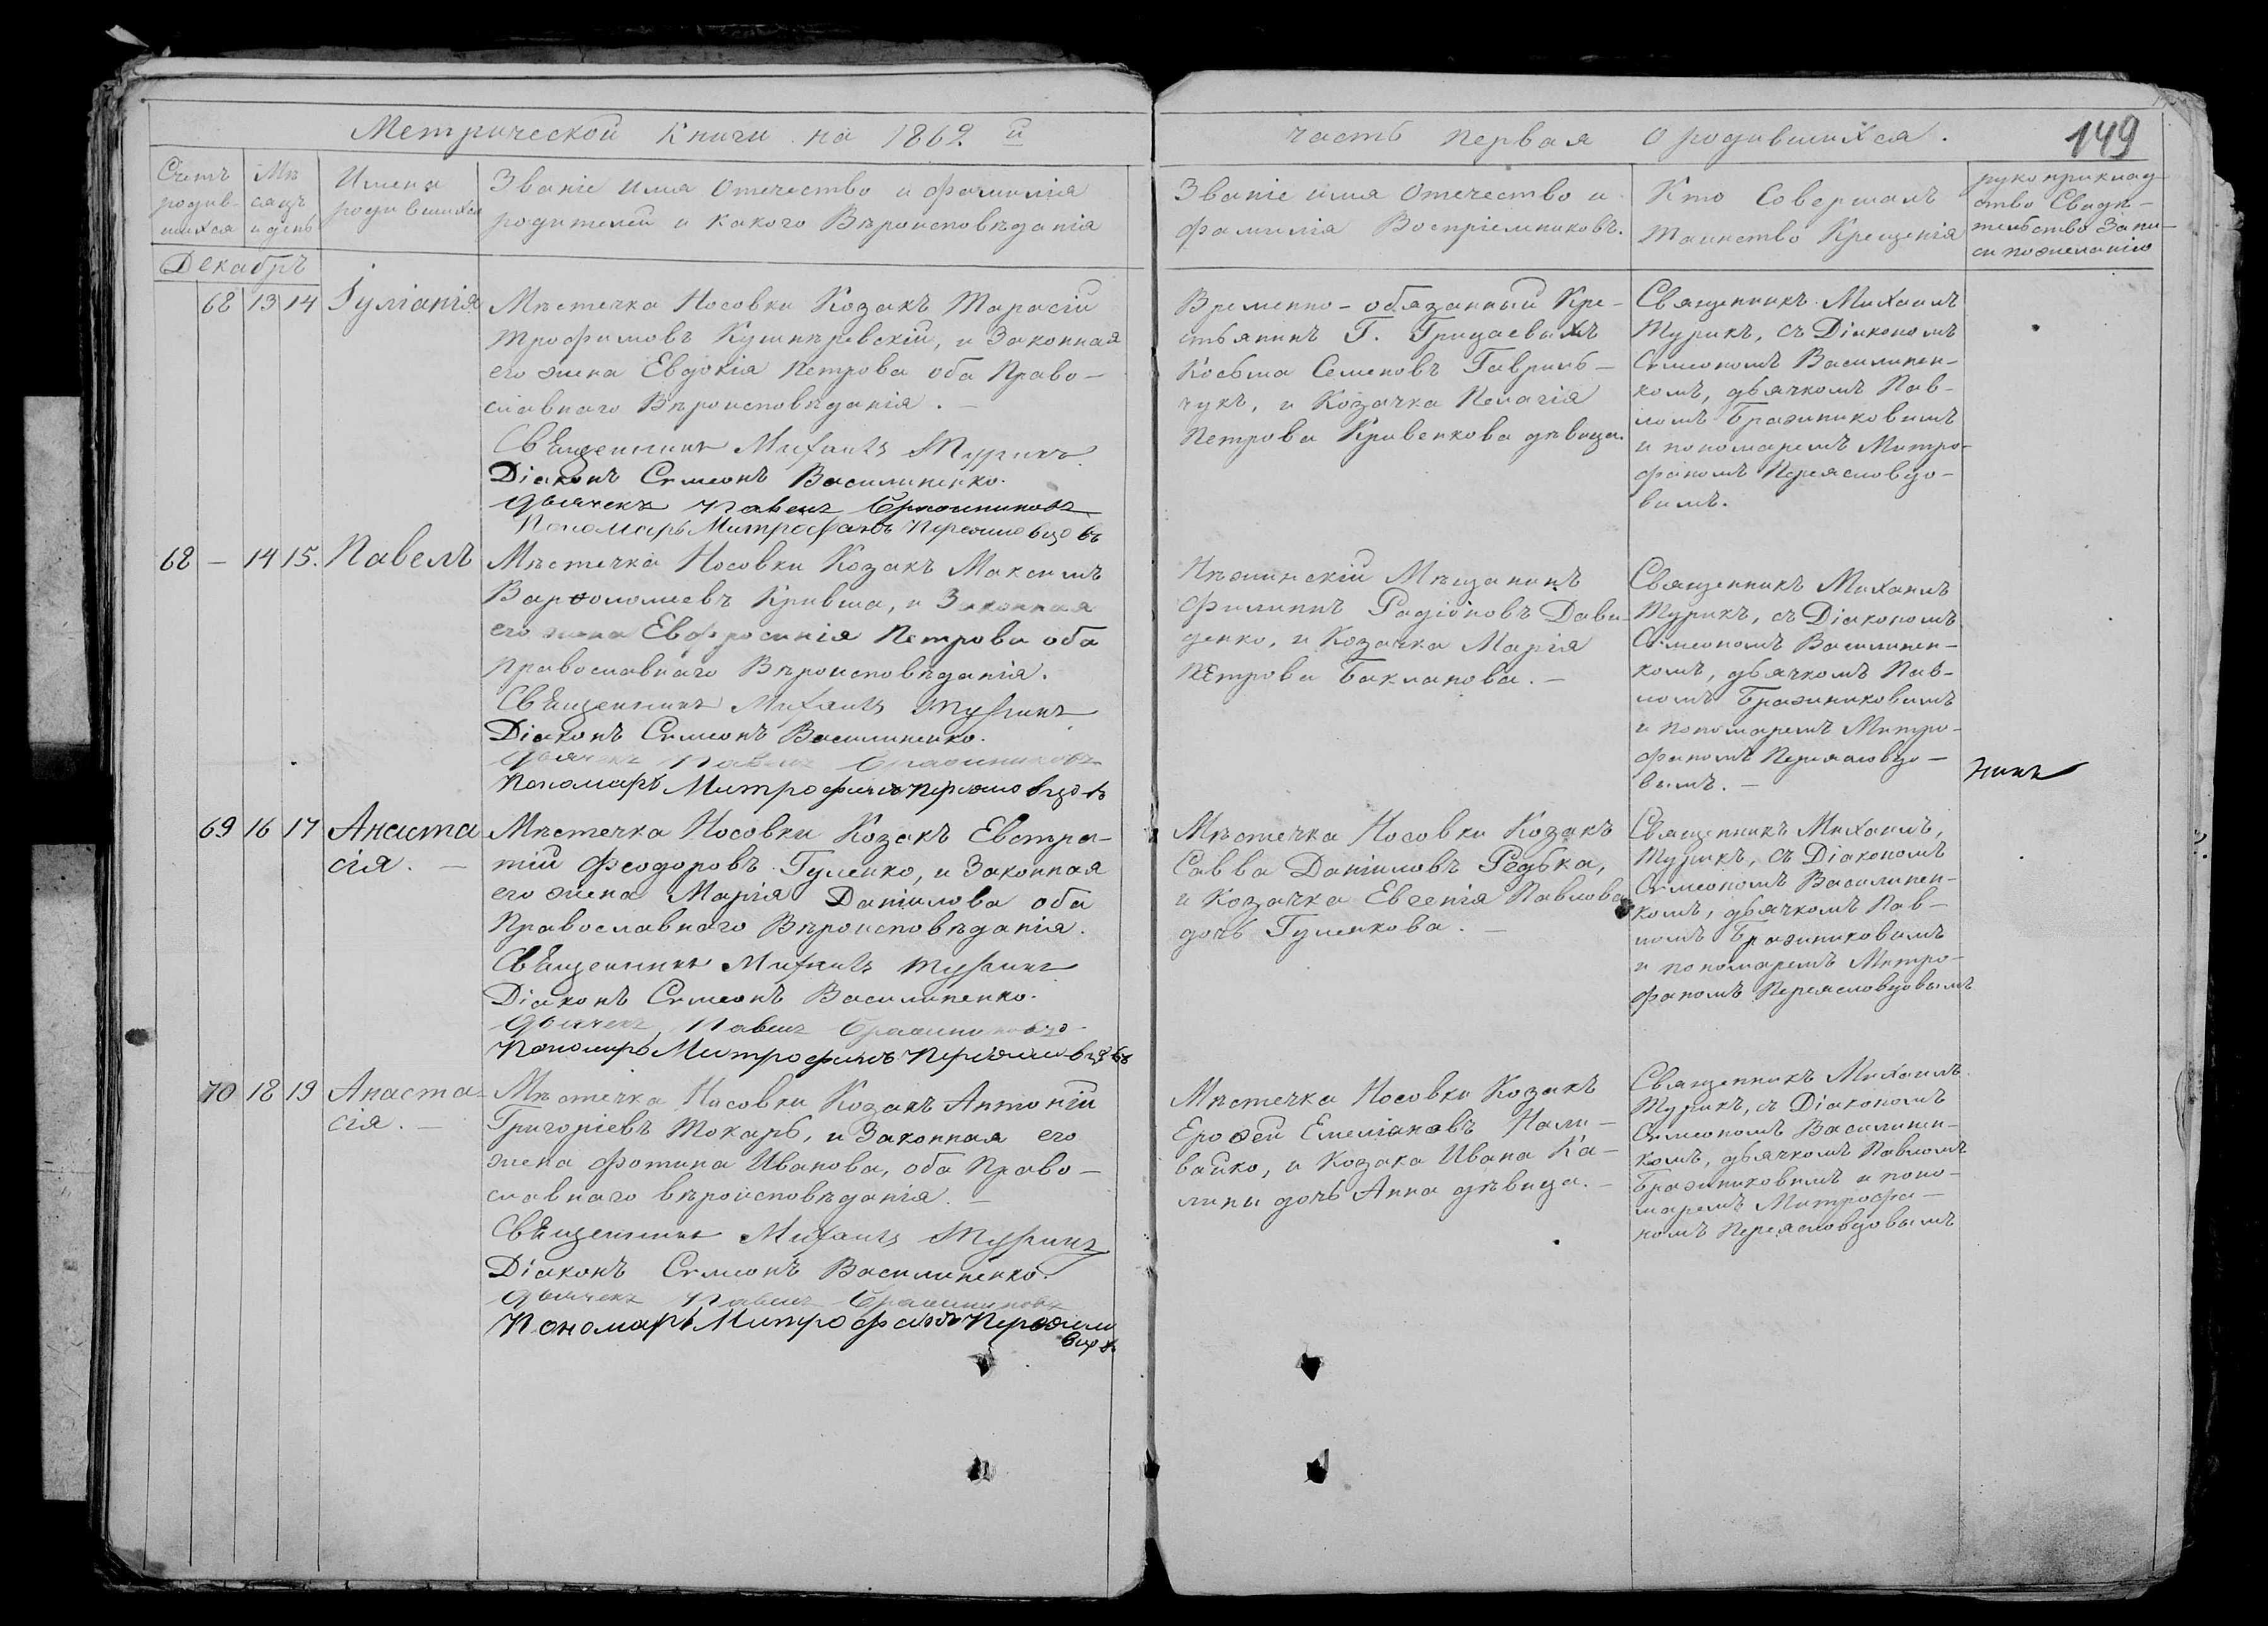 Метрической Книги на 1862 й
часть первая о родившихся.
149
Счетъ родив- шихся
Мѣ сяцъ и день
Имена родившихся
Званіе имя Отечество и фамилія
родителей и какого Вѣроисповѣданія
Званіе имя Отечество и
фамилія Воспріемниковъ.
Кто Совершалъ
Таинство Крещенія
рукоприклад-
ство Свидѣ-
тельство Запи-
си по желанію
Декабрь
68 13 14 Іуліанія
Мѣстечка Носовки Козакъ Тарасій
Трофимовъ Кушнѣревскій, и Законная
его жена Евдокія Петрова оба Право-
славнаго Вѣроисповѣданія. —
Священникъ Михаилъ Турикъ
Діаконъ Симеонъ Василипенко.
Дьячекъ Павелъ Бражниковъ
Пономарь Митрофанъ Переясловцовъ
Временно-обязанный Кре-
стьянинъ Г. Грицаевыхъ
Косьма Семеновъ Гавриль-
чукъ, и Козачка Пелагія
Петрова Кривенкова дѣвица.
Священникъ Михаилъ
Турикъ, съ Діакономъ
Симеономъ Василипен-
комъ, дьячкомъ Пав-
ломъ Бражниковымъ
и пономаремъ Митро-
фаномъ Переясловцо-
вымъ.
68 — 14 15. Павелъ
Мѣстечка Носовки Козакъ Максимъ
Варфоломеевъ Кривша, и Законная
его жена Евфросинія Петрова оба
Православнаго Вѣроисповѣданія.
Священникъ Михаилъ Турикъ
Діаконъ Симеонъ Василипенко.
Дьячекъ Павелъ Бражниковъ
Пономарь Митрофанъ Переясловцовъ
Нѣжинскій Мѣщанинъ
Филиппъ Радіоновъ Дави-
денко, и Козачка Марія
Петрова Бакланова. —
Священникъ Михаилъ
Турикъ, съ Діакономъ
Симеономъ Василипен-
комъ, дьячкомъ Пав-
ломъ Бражниковымъ
и пономаремъ Митро-
фаномъ Переясловцо-
вымъ. —
69 16 17 Анаста
сія. —
Мѣстечка Носовки Козакъ Евстра-
тій Феодоровъ Гуленко, и Законная
его жена Марія Даніилова оба
Православнаго Вѣроисповѣданія.
Священникъ Михаилъ Турикъ
Діаконъ Симеонъ Василипенко.
Дьячекъ Павелъ Бражниковъ
Пономарь Митрофанъ Переясловцовъ
Мѣстечка Носовки Козакъ
Савва Даніиловъ Редька,
и Козачка Евгенія Павлова
дочь Гуленкова. —
Священникъ Михаилъ,
Турикъ, съ Діакономъ
Симеономъ Василипен-
комъ, дьячкомъ Пав-
ломъ Бражниковымъ
и пономаремъ Митро-
фаномъ Переясловцовымъ
70 18 19 Анаста-
сія. —
Мѣстечка Носовки Козакъ Антоній
Григоріевъ Токарь, и Законная его
жена Фотина Иванова, оба Право-
славнаго вѣроисповѣданія. —
Священникъ Михаилъ Турикъ
Діаконъ Симеонъ Василипенко.
Дьячекъ Павелъ Бражниковъ
Пономарь Митрофанъ Переясло
вцовъ
Мѣстечка Носовки Козакъ
Ерофей Емеліановъ Нали-
вайко, и Козака Ивана Ка-
лины дочь Анна дѣвица. —
Священникъ Михаилъ
Турикъ, съ Діакономъ
Симеономъ Василипен-
комъ, дьячкомъ Павломъ
Бражниковымъ и поно-
маремъ Митрофа-
номъ Переясловцовымъ